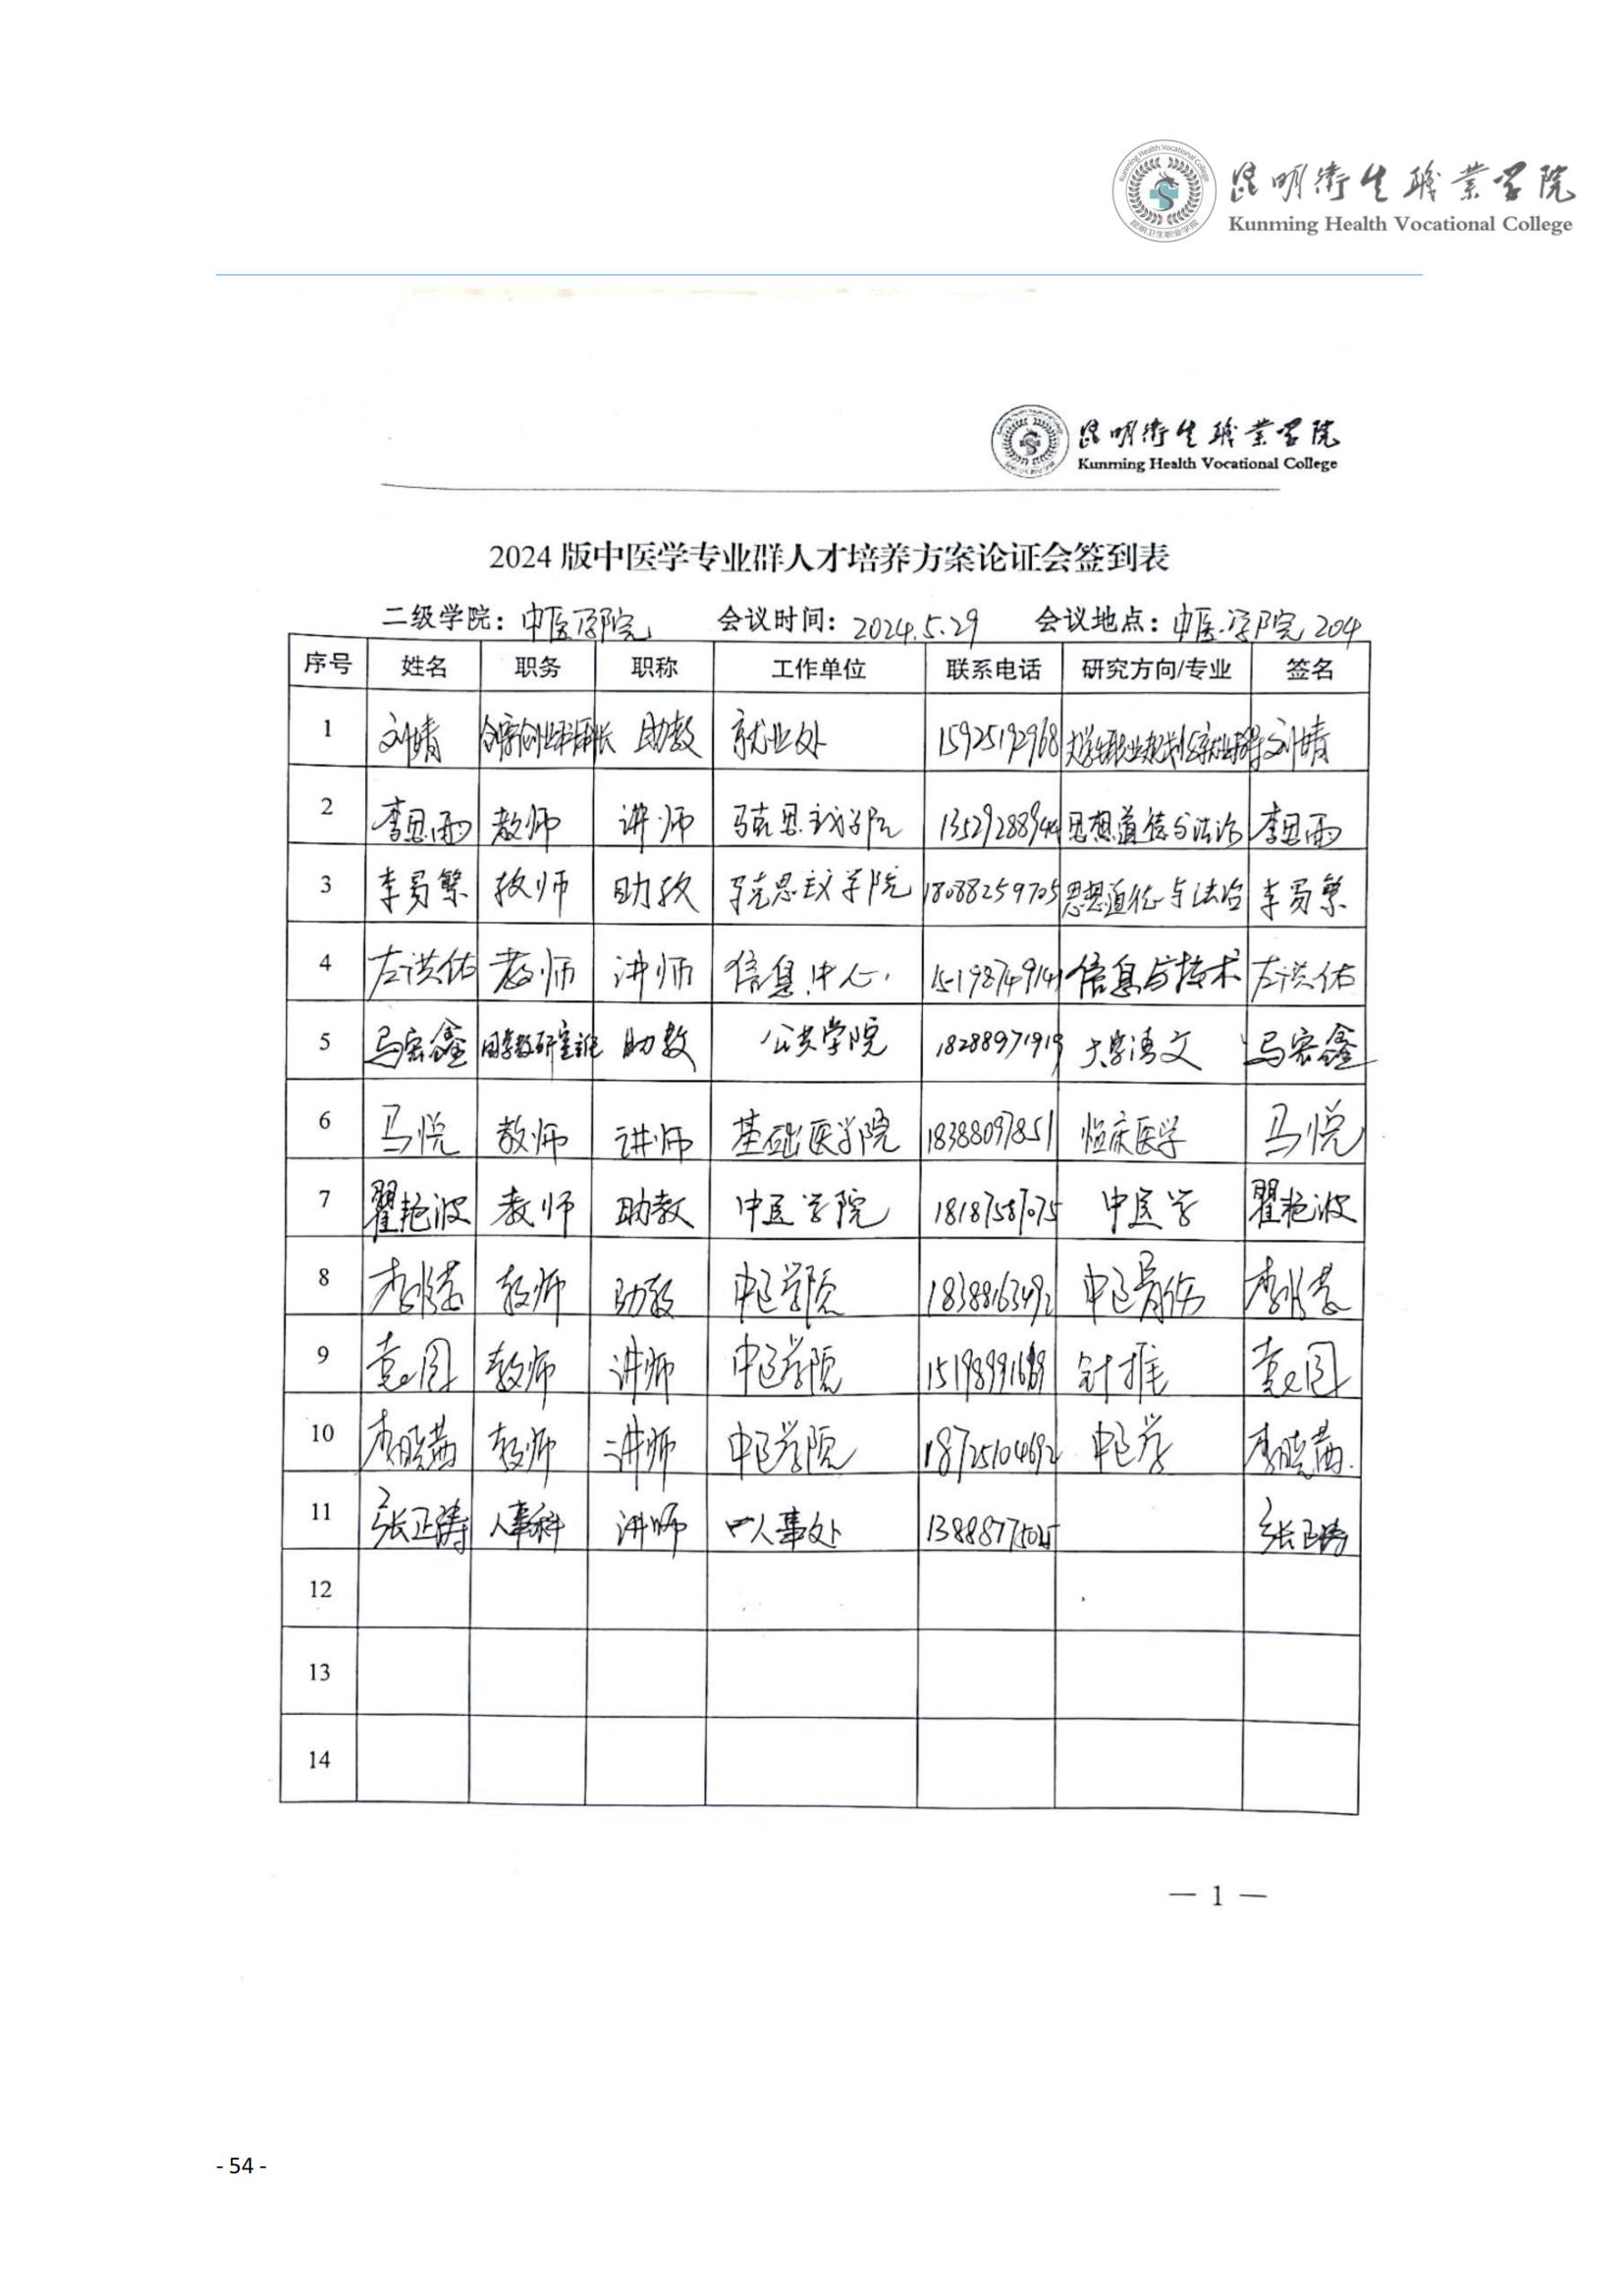 昆明衛生職業学院
Kunming Health Vocational College
昆明衛生職業学院
Kunming Health Vocational College
2024 版中医学专业群人才培养方案论证会签到表
二级学院：中医学院 会议时间：2024.5.29 会议地点：中医学院 204
序号 姓名 职务 职称 工作单位 联系电话 研究方向/专业 签名
1 刘婧 助教 就业处 15925192968 刘婧
2 李思雨 教师 讲师 马克思主义学院 思想道德与法治 李思雨
3 李易繁 教师 助教 马克思主义学院 18088259705 思想道德与法治 李易繁
4 左洪佑 教师 讲师 信息中心 信息与技术 左洪佑
5 马宏鑫 助教 公共学院 18288971919 大学语文 马宏鑫
6 马悦 教师 讲师 基础医学院 18388097851 临床医学 马悦
7 翟艳波 教师 助教 中医学院 18187587075 中医学 翟艳波
8 教师 助教 中医学院 18388163492 中医骨伤
9 教师 讲师 中医学院 针推
10 李晓茜 教师 讲师 中医学院 18725104692 中医学 李晓茜
11 张正涛 人事科 讲师 人事处 张正涛
12
13
14
— 1 —
- 54 -